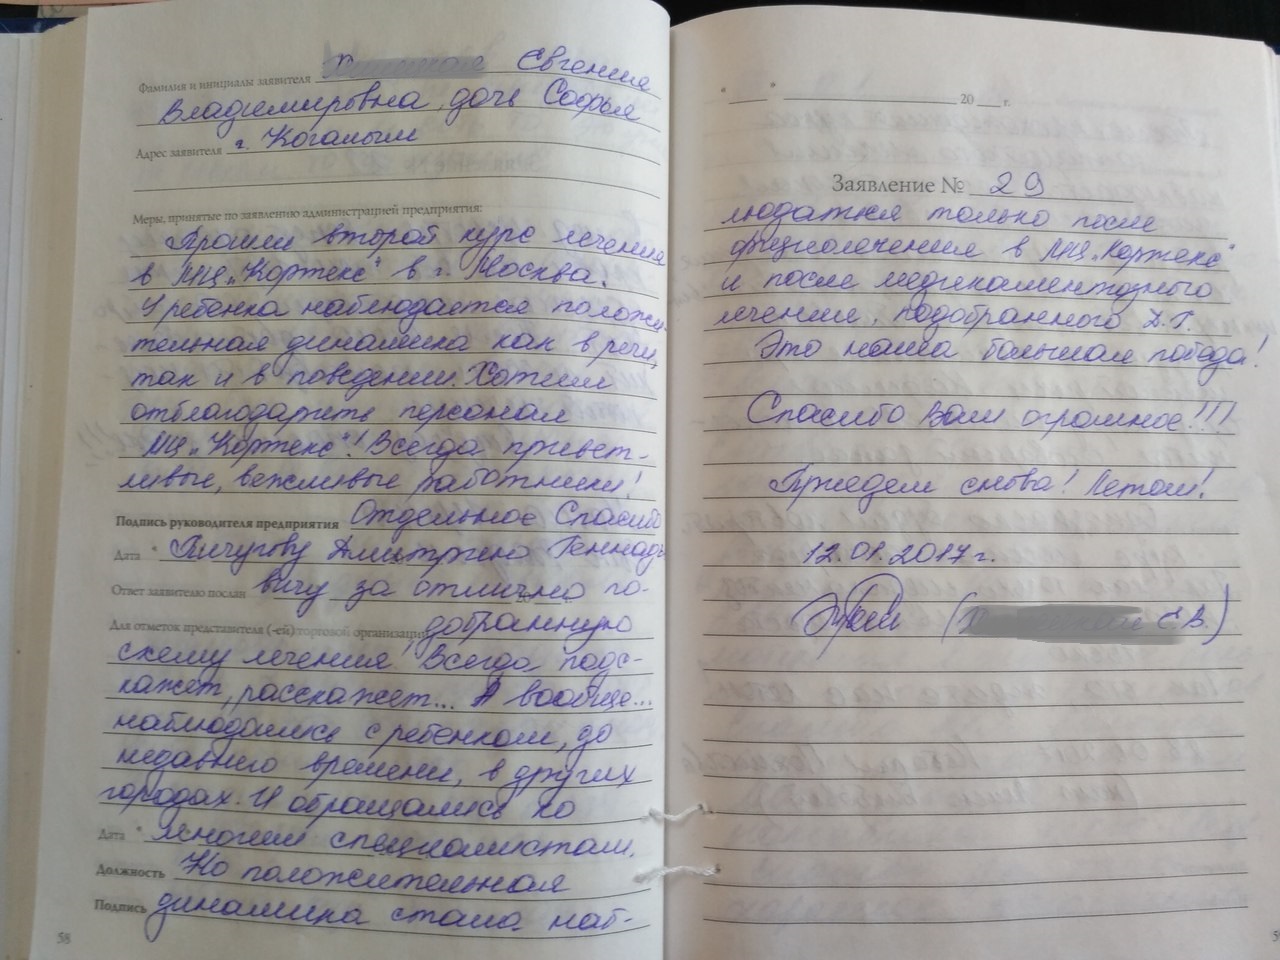 Фамилия и инициалы заявителя Евгения
Владимировна, дочь Софья
Адрес заявителя г. Когалым
Меры, принятые по заявлению администрацией предприятия:
Прошли второй курс лечения
в МЦ „Кортекс" в г. Москва.
У ребенка наблюдается положи-
тельная динамика как в речи,
так и в поведении. Хотим
отблагодарить персонал
МЦ „Кортекс"! Всегда привет-
ливые, вежливые работники!
Подпись руководителя предприятия Отдельное Спасибо
Дата " Пичугову Дмитрию Геннадь
Ответ заявителю послан вичу за отлично по-
Для отметок представителя (-ей) торговой организации добранную
схему лечения! Всегда подс-
кажет, расскажет... А вообще...
наблюдались с ребенком, до
недавнего времени, в других
городах. И обращались ко
Дата " многим специалистам.
Должность Но положительная
Подпись динамика стала наб-
58
" " 20 г.
Заявление № 29
людаться только после
физиолечения в МЦ „Кортекс"
и после медикаментозного
лечения, подобранного Д.Г.
Это наша большая победа!
Спасибо Вам огромное!!!
Приедем снова! Летом!
12.01.2017 г.
( Е.В.)